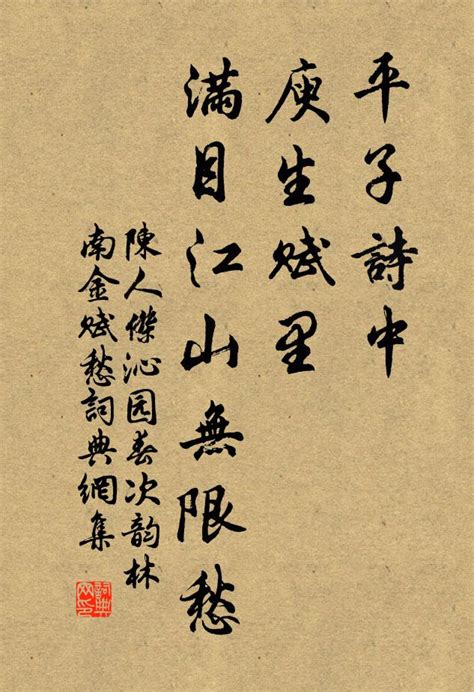 平子詩中
庾生赋里
滿目江山無限愁
陳人傑沁园春次韵林
南金赋愁詞典網集
詞典网印